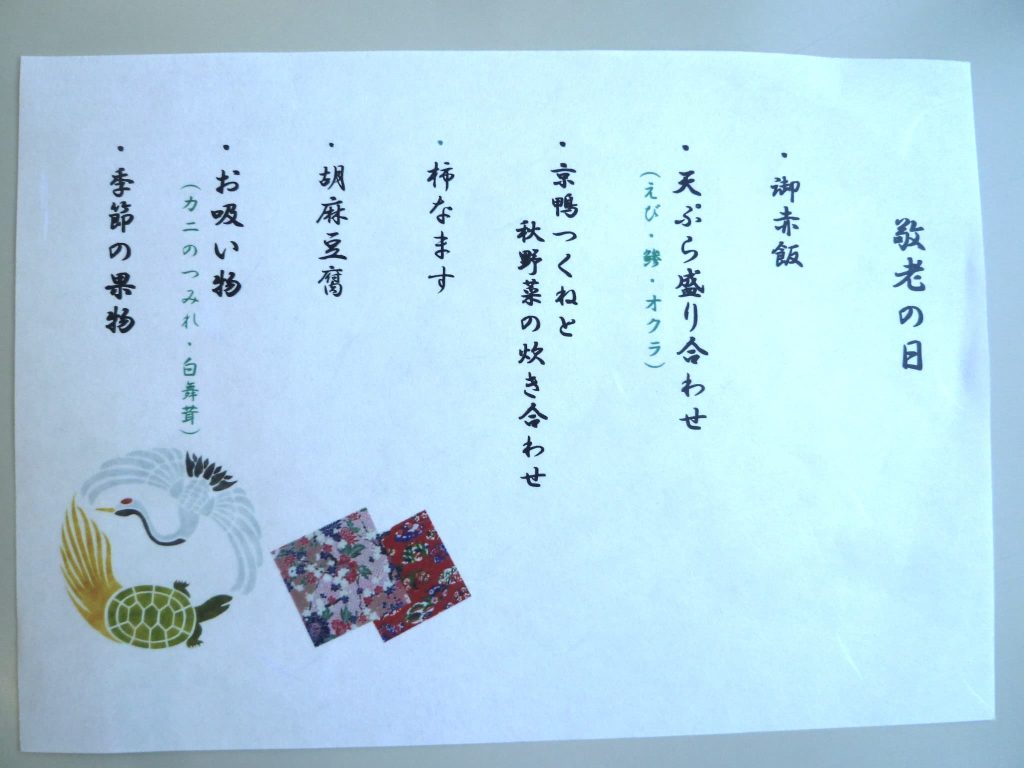 敬老の日
・御赤飯
・天ぷら盛り合わせ
（えび・鯵・オクラ）
・京鴨つくねと
秋野菜の炊き合わせ
・柿なます
・胡麻豆腐
・お吸い物
（カニのつみれ・白舞茸）
・季節の果物